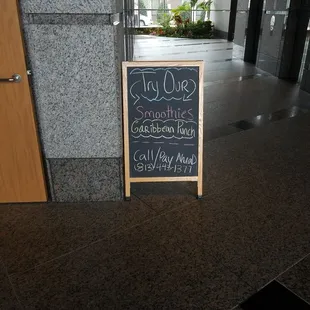 Try Our
Smoothies
Caribbean Punch
Call/Pay Ahead
(813) 443-1377